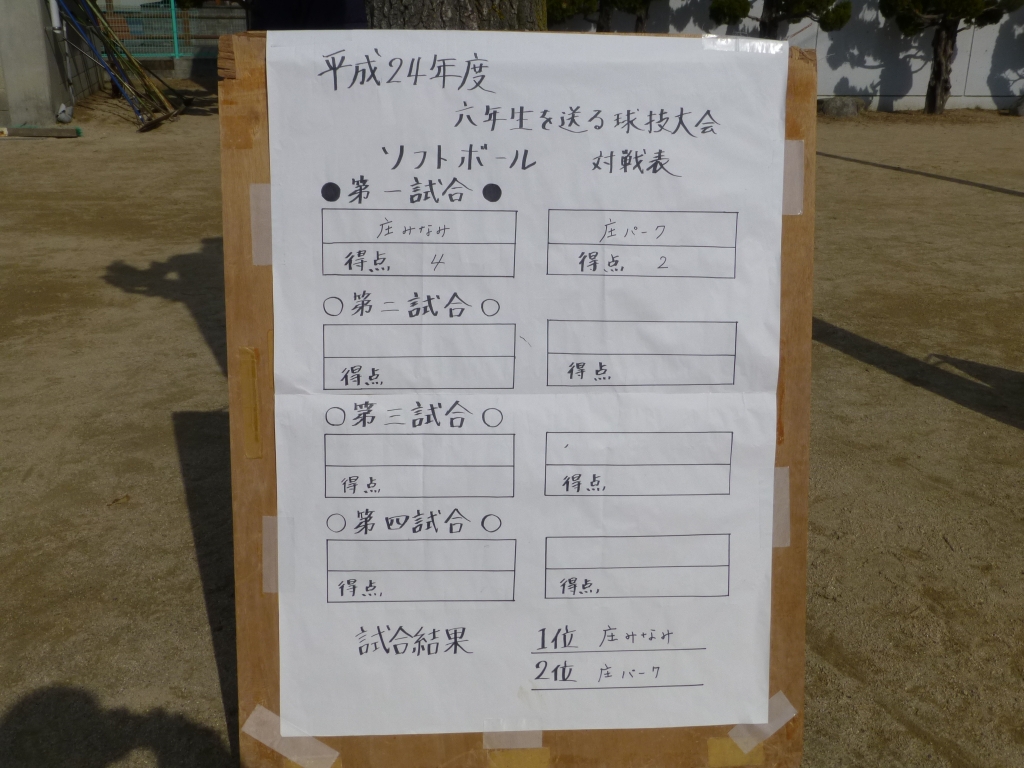 平成24年度
六年生を送る球技大会
ソフトボール 対戦表
●第一試合●
庄みなみ 庄パーク
得点 4 得点 2
○第二試合○
得点 得点
○第三試合○
得点 得点
○第四試合○
得点 得点
試合結果 1位 庄みなみ
2位 庄パーク